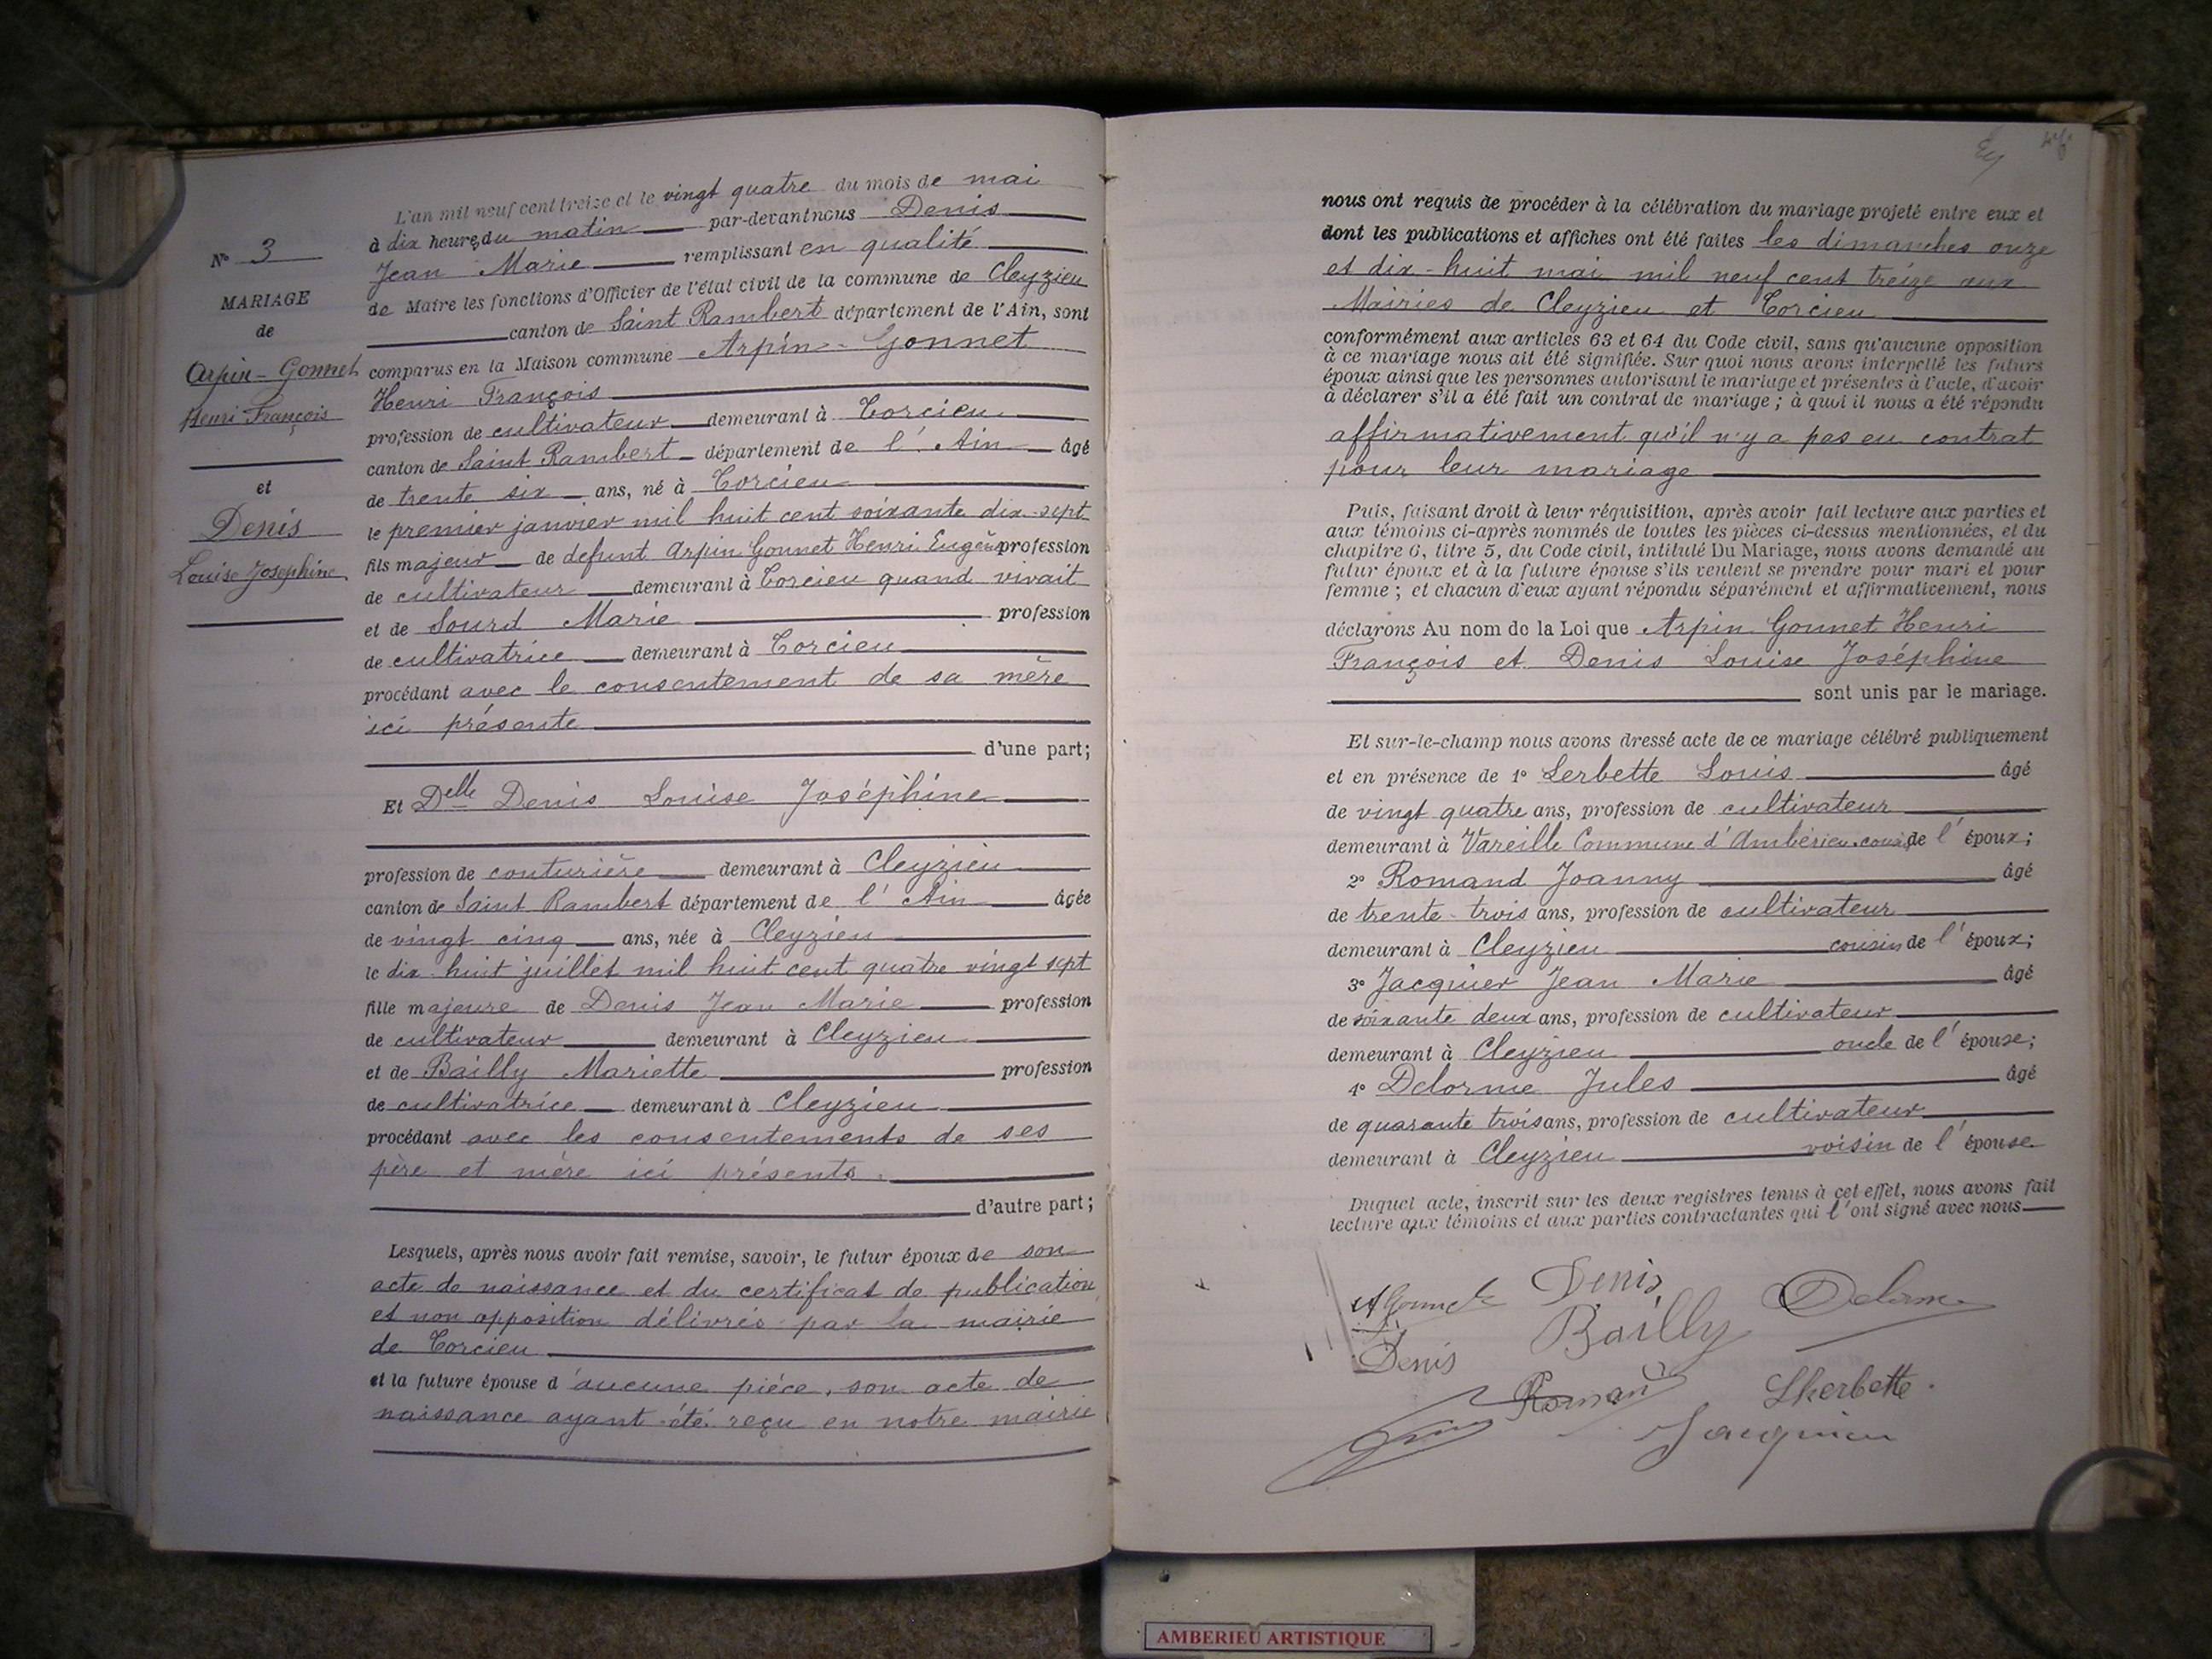 N° 3
MARIAGE
de
Arpin-Gonnet
Henri François
et
Denis
Louise Josephine
L'an mil neuf cent treize et le vingt quatre du mois de mai
à dix heures du matin par-devant nous Denis
Jean Marie remplissant en qualité
de Maire les fonctions d'Officier de l'état civil de la commune de Cleyzieu
canton de Saint Rambert département de l'Ain, sont
comparus en la Maison commune Arpin-Gonnet
Henri François
profession de cultivateur demeurant à Torcieu
canton de Saint Rambert département de l'Ain âgé
de trente six ans, né à Torcieu
le premier janvier mil huit cent soixante dix-sept
fils majeur de defunt Arpin Gonnet Henri Eugène profession
de cultivateur demeurant à Torcieu quand vivait
et de Sourd Marie profession
de cultivatrice demeurant à Torcieu
procédant avec le consentement de sa mère
ici présente
d'une part;
Et Delle Denis Louise Joséphine
profession de couturière demeurant à Cleyzieu
canton de Saint Rambert département de l'Ain âgée
de vingt cinq ans, née à Cleyzieu
le dix-huit juillet mil huit cent quatre vingt sept
fille majeure de Denis Jean Marie profession
de cultivateur demeurant à Cleyzieu
et de Bailly Mariette profession
de cultivatrice demeurant à Cleyzieu
procédant avec les consentements de ses
père et mère ici présents.
d'autre part;
Lesquels, après nous avoir fait remise, savoir, le futur époux de son
acte de naissance et du certificat de publication
et non opposition délivrés par la mairie
de Torcieu
et la future épouse d'aucune pièce, son acte de
naissance ayant été reçu en notre mairie
nous ont requis de procéder à la célébration du mariage projeté entre eux et
dont les publications et affiches ont été faites les dimanches onze
et dix-huit mai mil neuf cent treize aux
Mairies de Cleyzieu et Torcieu
conformément aux articles 63 et 64 du Code civil, sans qu'aucune opposition
à ce mariage nous ait été signifiée. Sur quoi nous avons interpellé les futurs
époux ainsi que les personnes autorisant le mariage et présentes à l'acte, d'avoir
à déclarer s'il a été fait un contrat de mariage ; à quoi il nous a été répondu
affirmativement qu'il n'y a pas eu contrat
pour leur mariage
Puis, faisant droit à leur réquisition, après avoir fait lecture aux parties et
aux témoins ci-après nommés de toutes les pièces ci-dessus mentionnées, et du
chapitre 6, titre 5, du Code civil, intitulé Du Mariage, nous avons demandé au
futur époux et à la future épouse s'ils veulent se prendre pour mari et pour
femme ; et chacun d'eux ayant répondu séparément et affirmativement, nous
déclarons Au nom de la Loi que Arpin Gonnet Henri
François et Denis Louise Joséphine
sont unis par le mariage.
Et sur-le-champ nous avons dressé acte de ce mariage célébré publiquement
et en présence de 1° Lerbette Louis âgé
de vingt quatre ans, profession de cultivateur
demeurant à Vareille Commune d'Ambérieu. cousin de l'époux;
2° Romand Joanny âgé
de trente-trois ans, profession de cultivateur
demeurant à Cleyzieu cousin de l'époux;
3° Jacquier Jean Marie âgé
de soixante deux ans, profession de cultivateur
demeurant à Cleyzieu oncle de l'épouse;
4° Delorme Jules âgé
de quarante trois ans, profession de cultivateur
demeurant à Cleyzieu voisin de l'épouse
Duquel acte, inscrit sur les deux registres tenus à cet effet, nous avons fait
lecture aux témoins et aux parties contractantes qui l'ont signé avec nous
Denis Delorme
Bailly
Denis
Roman Lherbette.
Jacquier
AMBERIEU ARTISTIQUE